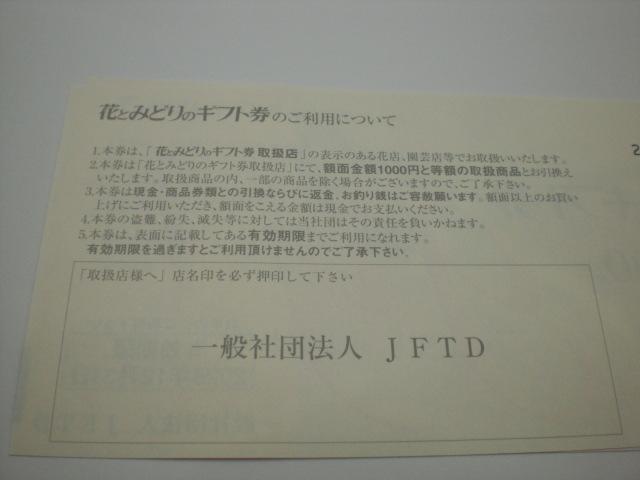 花とみどりのギフト券のご利用について
1.本券は、「花とみどりのギフト券 取扱店」の表示のある花店、園芸店等でお取扱いいたします。
2.本券は「花とみどりのギフト券取扱店」にて、額面金額1000円と等額の取扱商品とお引換え
いたします。取扱商品の内、一部の商品を除く場合がございますので、ご了承下さい。
3.本券は現金・商品券類との引換ならびに返金、お釣り銭はご容赦願います。額面以上のお買い
上げにご利用いただき、額面をこえる金額は現金でお支払いください。
4.本券の盗難、紛失、滅失等に対しては当社団はその責任を負いかねます。
5.本券は、表面に記載してある有効期限までご利用になれます。
有効期限を過ぎますとご利用頂けませんのでご了承下さい。
「取扱店様へ」店名印を必ず押印して下さい
一般社団法人 JFTD
2